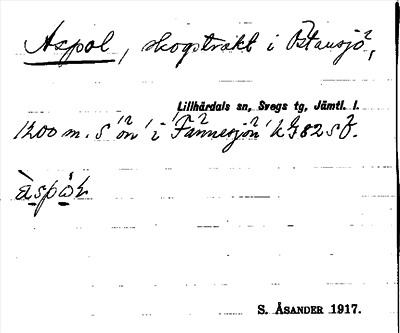 Aspol, skogstrakt i Östansjö,
Lillhärdals sn, Svegs tg, Jämtl. l.
1200 m. S ön i Fännesjön
S. ÅSANDER 1917.